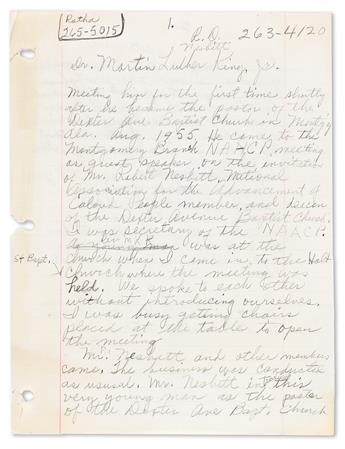 Retha
265-5015
1.
R. D.
Nesbitt
263-4120
Dr. Martin Luther King, Jr.
Meeting him for the first time shortly
after he became the pastor of the
Dexter Ave Baptist Church in Montg'y
Ala. Aug. 1955. He come to the
Montgomery Branch NAACP meeting
as guest speaker on the invitation
of Mr. Nesbitt, National
Association for the Advancement of
Colored People member, and deacon
of the Dexter Avenue Baptist Church.
I was secretary of the NAACP.
was at the
St Bapt.
Church when I came in, to the Holt
Church where the meeting was
held. We spoke to each other
without introducing ourselves.
I was busy getting chairs
placed at the table to open
the meeting
Mr. Nesbitt, and other members
came. The business was conducted
as ususal. Mr. Nesbitt this
very young man as the pastor
of the Dexter Ave Bapt. Church